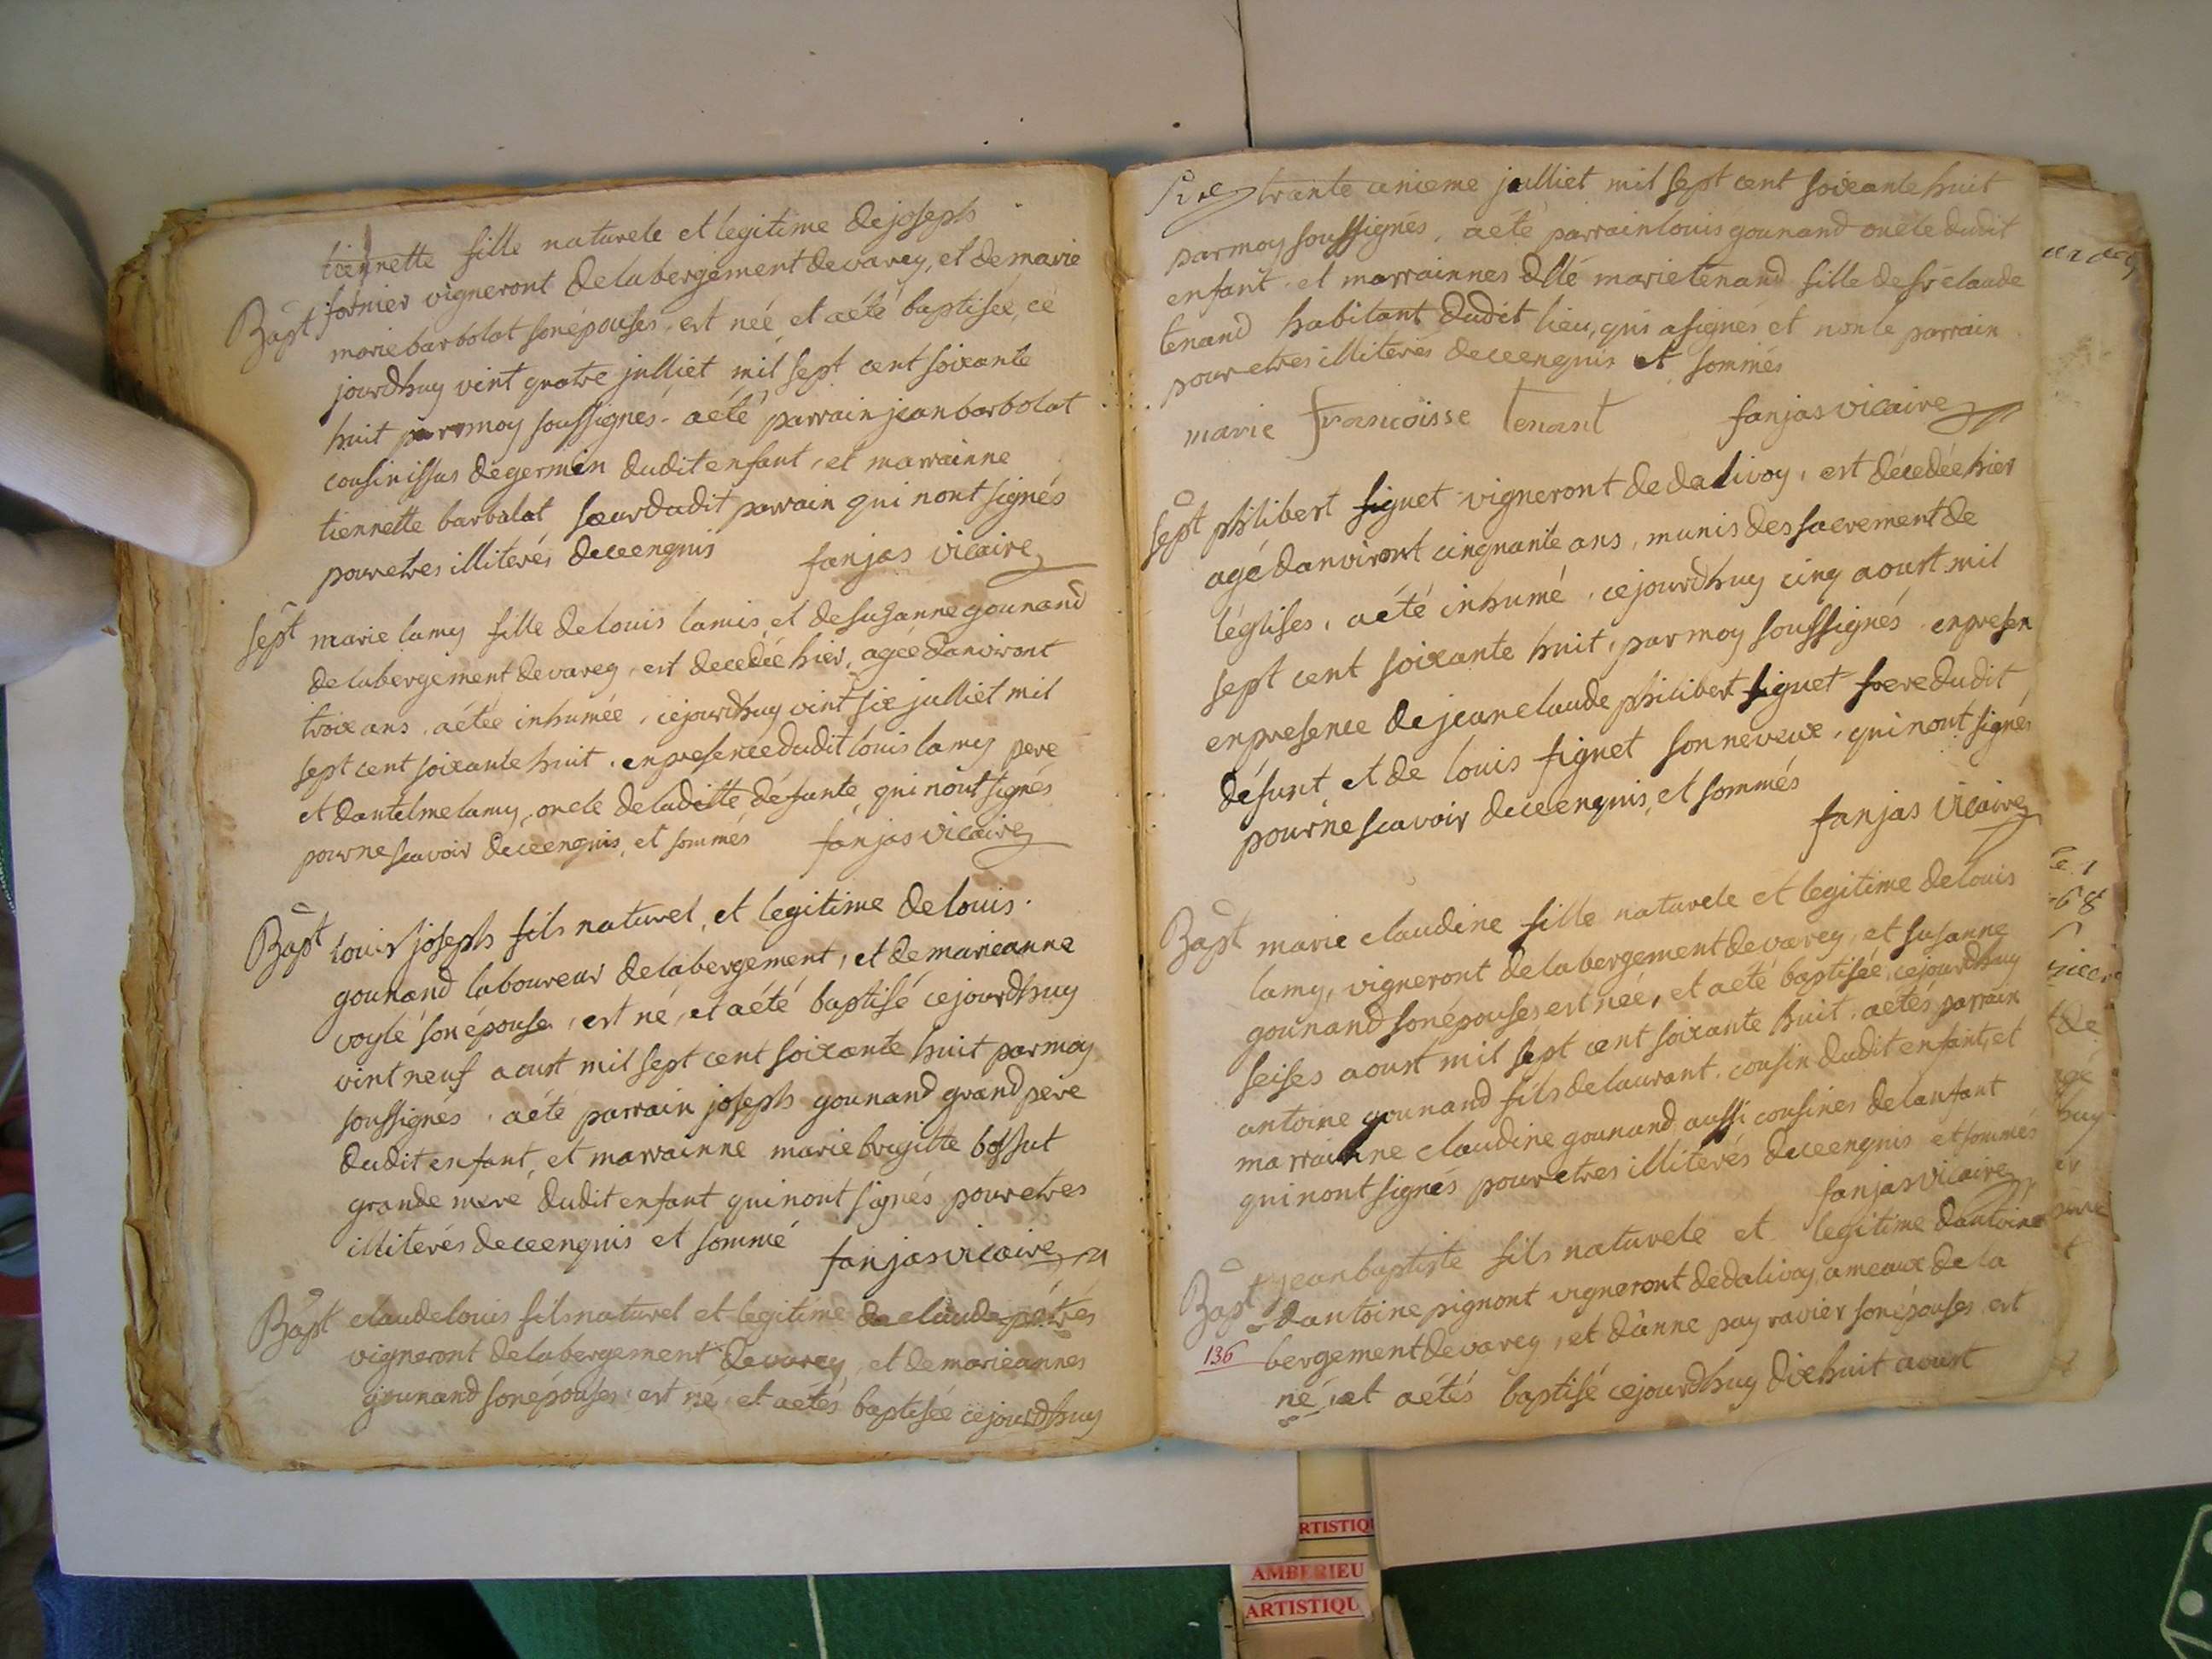 tiennette fille naturele et legitime de joseph
Bapt fornier vigneront de labergement de varey, et de marie
marie barbolat son épouses, est née et a été baptisée, ce
jourdhuy vint quatre julliet mil sept cent soixante
huit par moy soussignés. a été parrain jean barbolat
cousin issus de germin dudit enfant, et marrainne
tiennette barbalat sœur dudit parrain qui nont signés
pour etres illiterés de ce enquis fanjas vicaire
sept marie lamy fille de louis lamis et de susanne gounand
de labergement de varey, est decedée hier, agée danviront
troix ans, a étée inhumée, cejourdhuy vint six julliet mil
sept cent soixante huit. en presence dudit louis lamy pere
et dantelme lamy, oncle de laditte défunte qui nont signés
pour ne scavoir de ce enquis, et sommés fanjas vicaire
Bapt louis joseph fils naturel, et legitime de louis
gounand laboureur de labergement, et de marieanne
voyle son épouse, est né, et a été baptisé cejourdhuy
vint neuf aoust mil sept cent soixante huit par moy
soussignés. a été parrain joseph gounand grand pere
dudit enfant, et marrainne marie brigitte bossut
grande mere dudit enfant qui nont signés pour etres
illiterés de ce enquis et sommé fanjas vicaire
Bapt claude louis fils naturel et legitime de claude pétres
vigneront de labergement de varey, et de marieannes
gounand son épouses est né, et a étés baptisée cejourdhuy
trante unieme julliet mil sept cent soixante huit
par moy soussignés, a été parrain louis gounand oncle dudit
enfant et marrainnes dlle marie tenand fille de sr claude
tenand habitant dudit lieu, quis a signés et non le parrain
pour etres illiterés de ce enquis et sommés
marie francoisse tenant fanjas vicaire
sept philibert figuet vigneront de dalivoy, est décedée hier
agé danviront cinquante ans, munis des sacrement de
léglises, a été inhumé, cejourdhuy cinq aoust mil
sept cent soixante huit, par moy soussignés en presen
en presence de jean claude philibert figuet frere dudit
défunt, et de louis figuet son neveux, qui nont signés
pour ne scavoir de ce enquis, et sommés
fanjas vicaire
Bapt marie claudine fille naturele et legitime de louis
lamy, vigneront de labergement de varey, et susanne
gounand son épouses est née, et a eté baptisée, cejourdhuy
seises aoust mil sept cent soixante huit. a etés parrain
antoine gounand fils de laurant. cousin dudit enfant, et
marrainne claudine gounand aussi cousines de lanfant
qui nont signés pour etres illiterés de ce enquis et sommés
fanjas vicaire
Bapt jean baptiste fils naturele et legitime dantoine
dantoine pignont vigneront de dalivoy ameaux de la
136 bergement de varey, et danne pay ravier son épouses est
né, et a étés baptisé cejourdhuy dixhuit aoust
RTISTIQ
AMBERIEU
ARTISTIQU